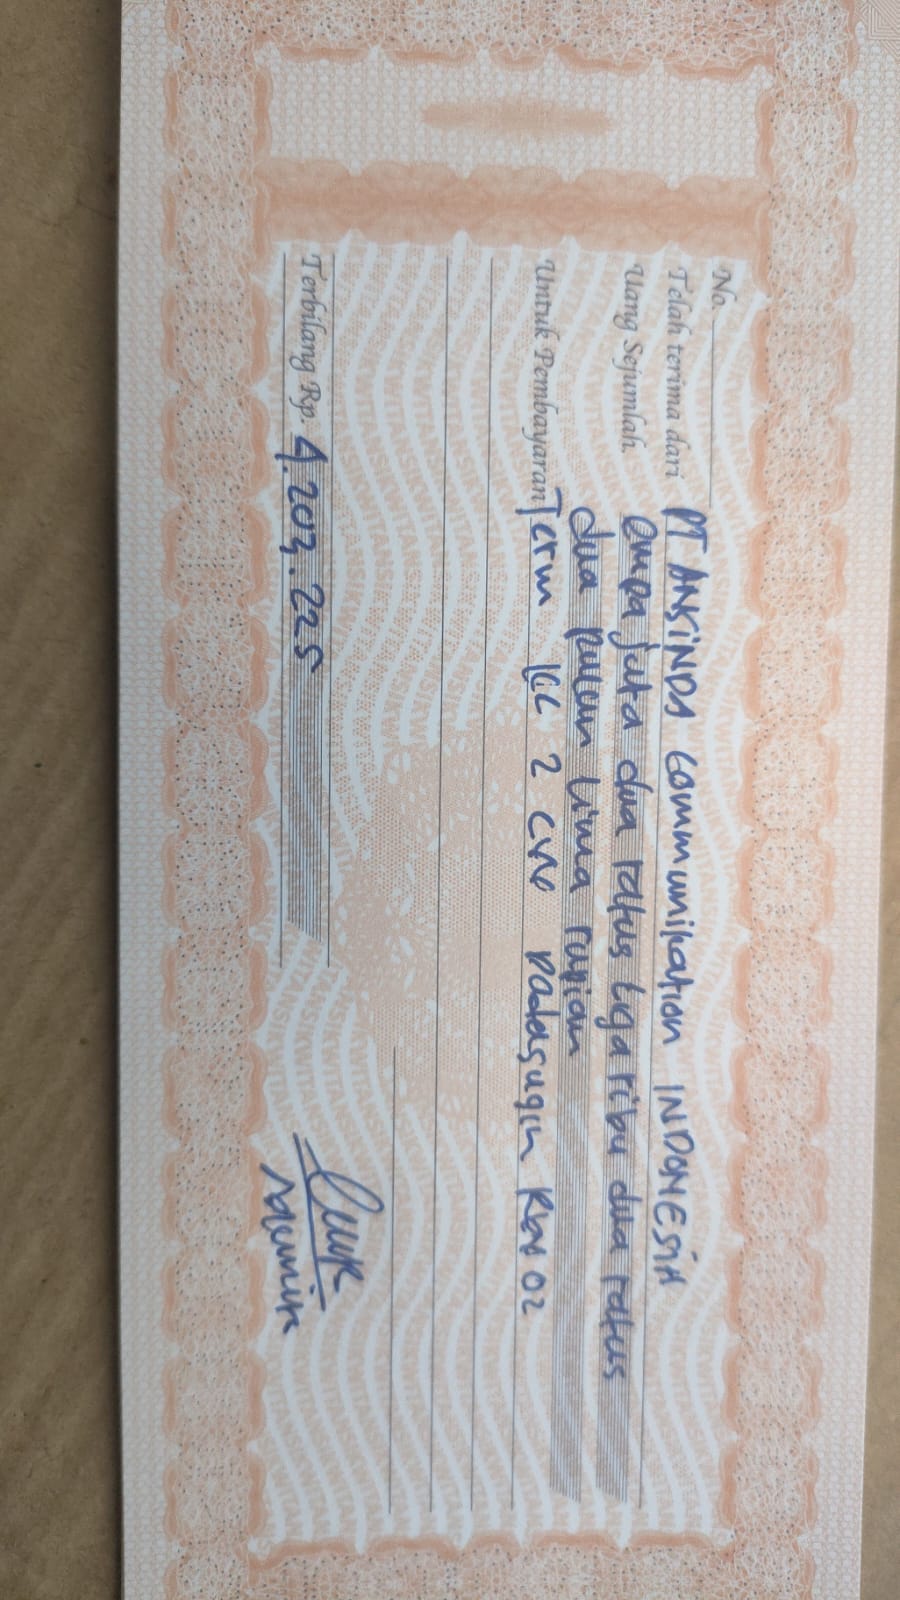 No.
Telah terima dari PT ANSINDA Communikation INDONESIA
Uang Sejumlah. empa juta dua ratus tiga ribu dua ratus
dua puluh lima rupiah
Untuk Pembayaran Term 2 CW Rev 02
Terbilang Rp. 4.203.225